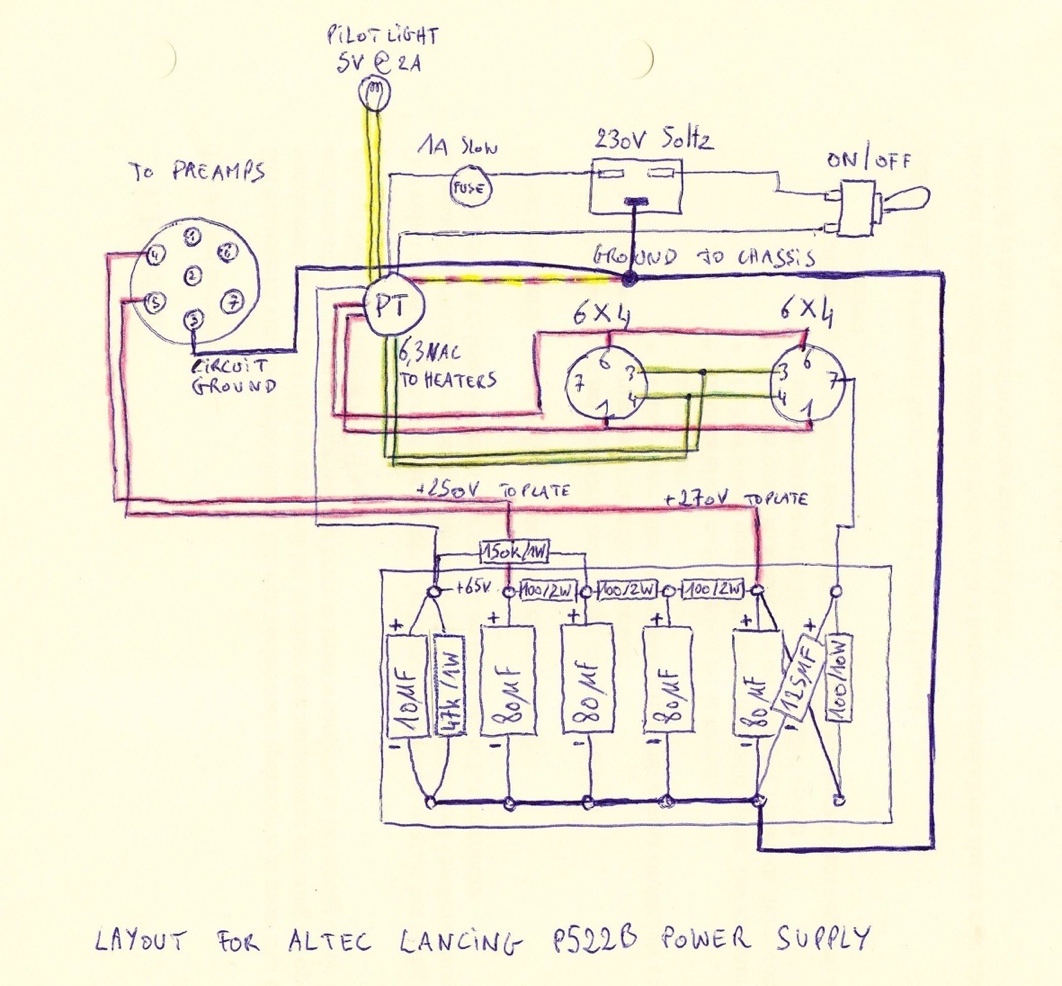 PILOT LIGHT
5V @ 2A
1A SLOW
FUSE
230V 50Hz
ON/OFF
TO PREAMPS
1
4
6
2
5
7
3
CIRCUIT
GROUND
GROUND TO CHASSIS
PT
6X4
6X4
6
3
7
4
1
6
3
7
4
1
6,3VAC
TO HEATERS
+250V TO PLATE
+270V TO PLATE
150K/1W
+65V
100/2W
100/2W
100/2W
+
+
+
+
+
+
10µF
47k/1W
80µF
80µF
80µF
80µF
125µF
100/10W
-
-
-
-
-
-
LAYOUT FOR ALTEC LANCING P522B POWER SUPPLY